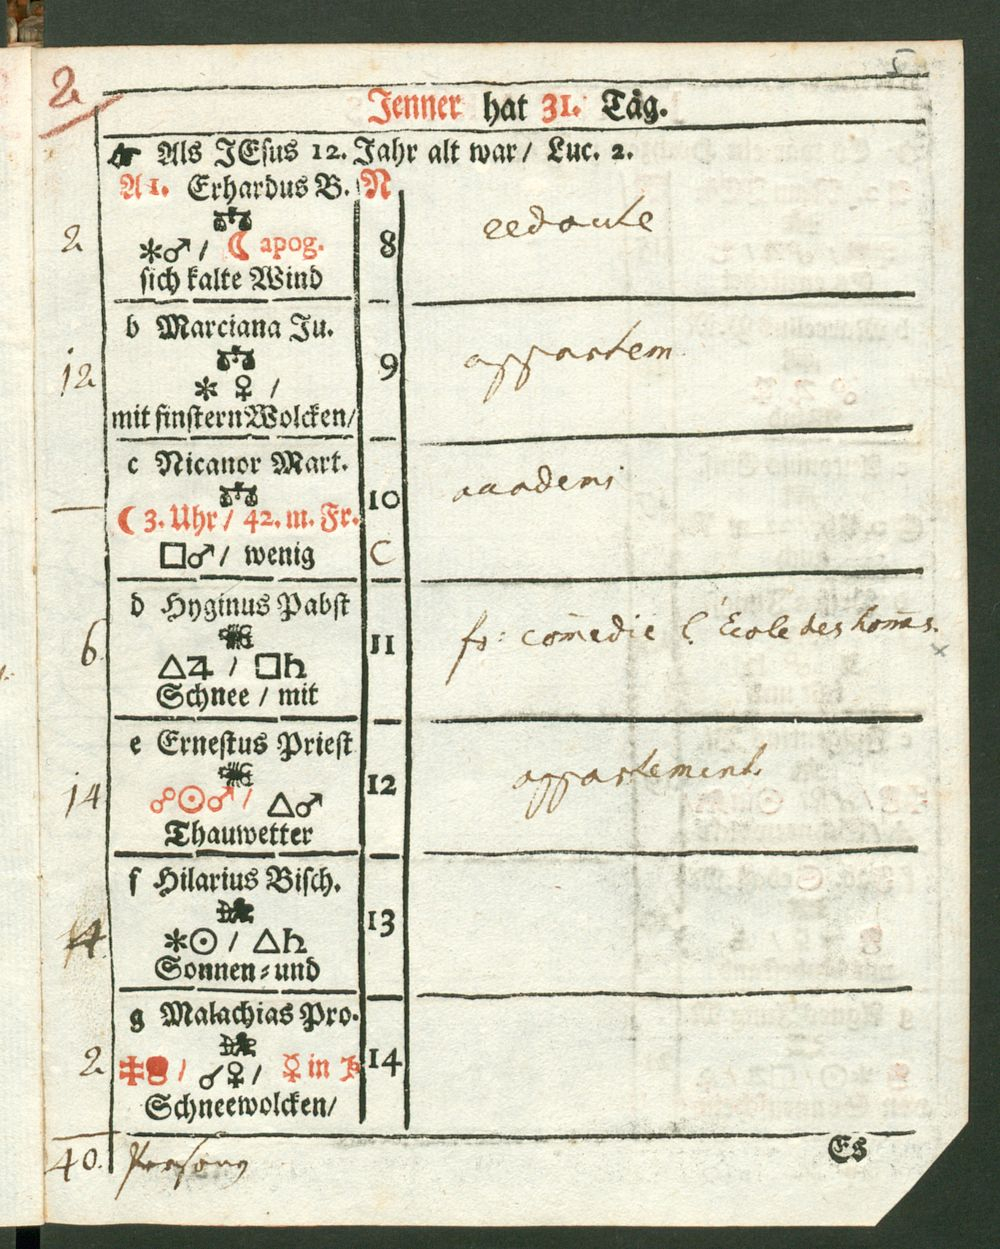 2
Jenner hat 31. Tåg.
☞ Als JEsus 12. Jahr alt war / Luc. 2.
A 1. Erhardus B. N
2
♎
✶♂ / ☾ apog.
8
redoute
sich kalte Wind
b Marciana Ju.
♎
12
✶ ♀ /
9
appartem
mit finstern Wolcken /
c Nicanor Mart.
♎
☾ 3. Uhr / 42. m. Fr.
10
□♂ / wenig
C
d Hyginus Pabst
♏
6
△♃ / □♄
11
fr: com̄edie l'École des hom̄es.
Schnee / mit
e Ernestus Priest
♏
14
☍☉♂ / △♂
12
appartement.
Thauwetter
f Hilarius Bisch.
♐
4
✶☉ / △♄
13
Sonnen = und
g Malachias Pro.
♐
2
/ ☌♀ / ☿ in
14
Schneewolcken /
40. Persony
Es